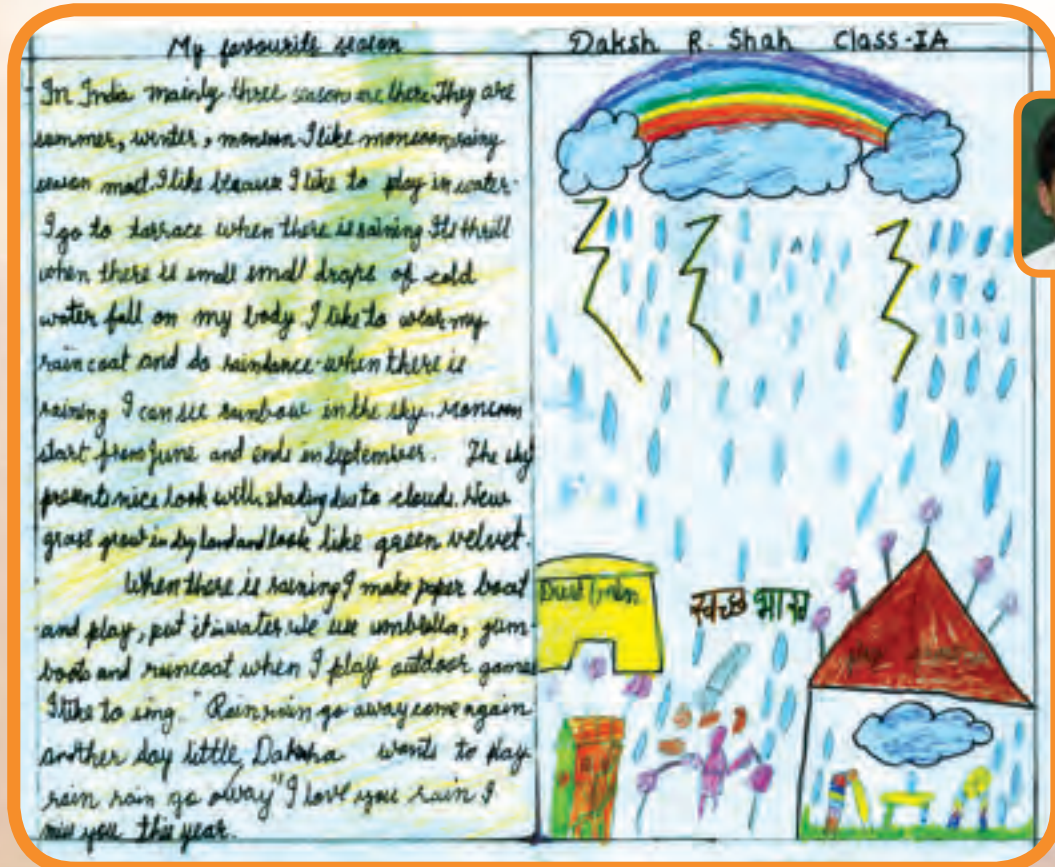 My favourite season
Daksh R. Shah Class-IA
In India mainly three season are there. They are
summer, winter, monsoon I like monsoon rainy
season most. I like because I like to play in water.
I go to tarrace when there is raining It thrill
when there is small small drops of cold
water fall on my body. I like to wear my
rain coat and do raindance. when there is
raining I can see rainbow in the sky. Monsoon
start from june and ends in september. The sky
presents nice look with shading due to clouds. New
grass grow in land and look like green velvet.
When there is raining I make paper boat
and play, put it in water. we use umbrella, gum
boots and raincoat when I play outdoor games
I like to sing. "Rain rain go away come again
another day little, Daksha wants to play
rain rain go away" I love you rain I
miss you this year.
Dustbin
स्वच्छ भारत